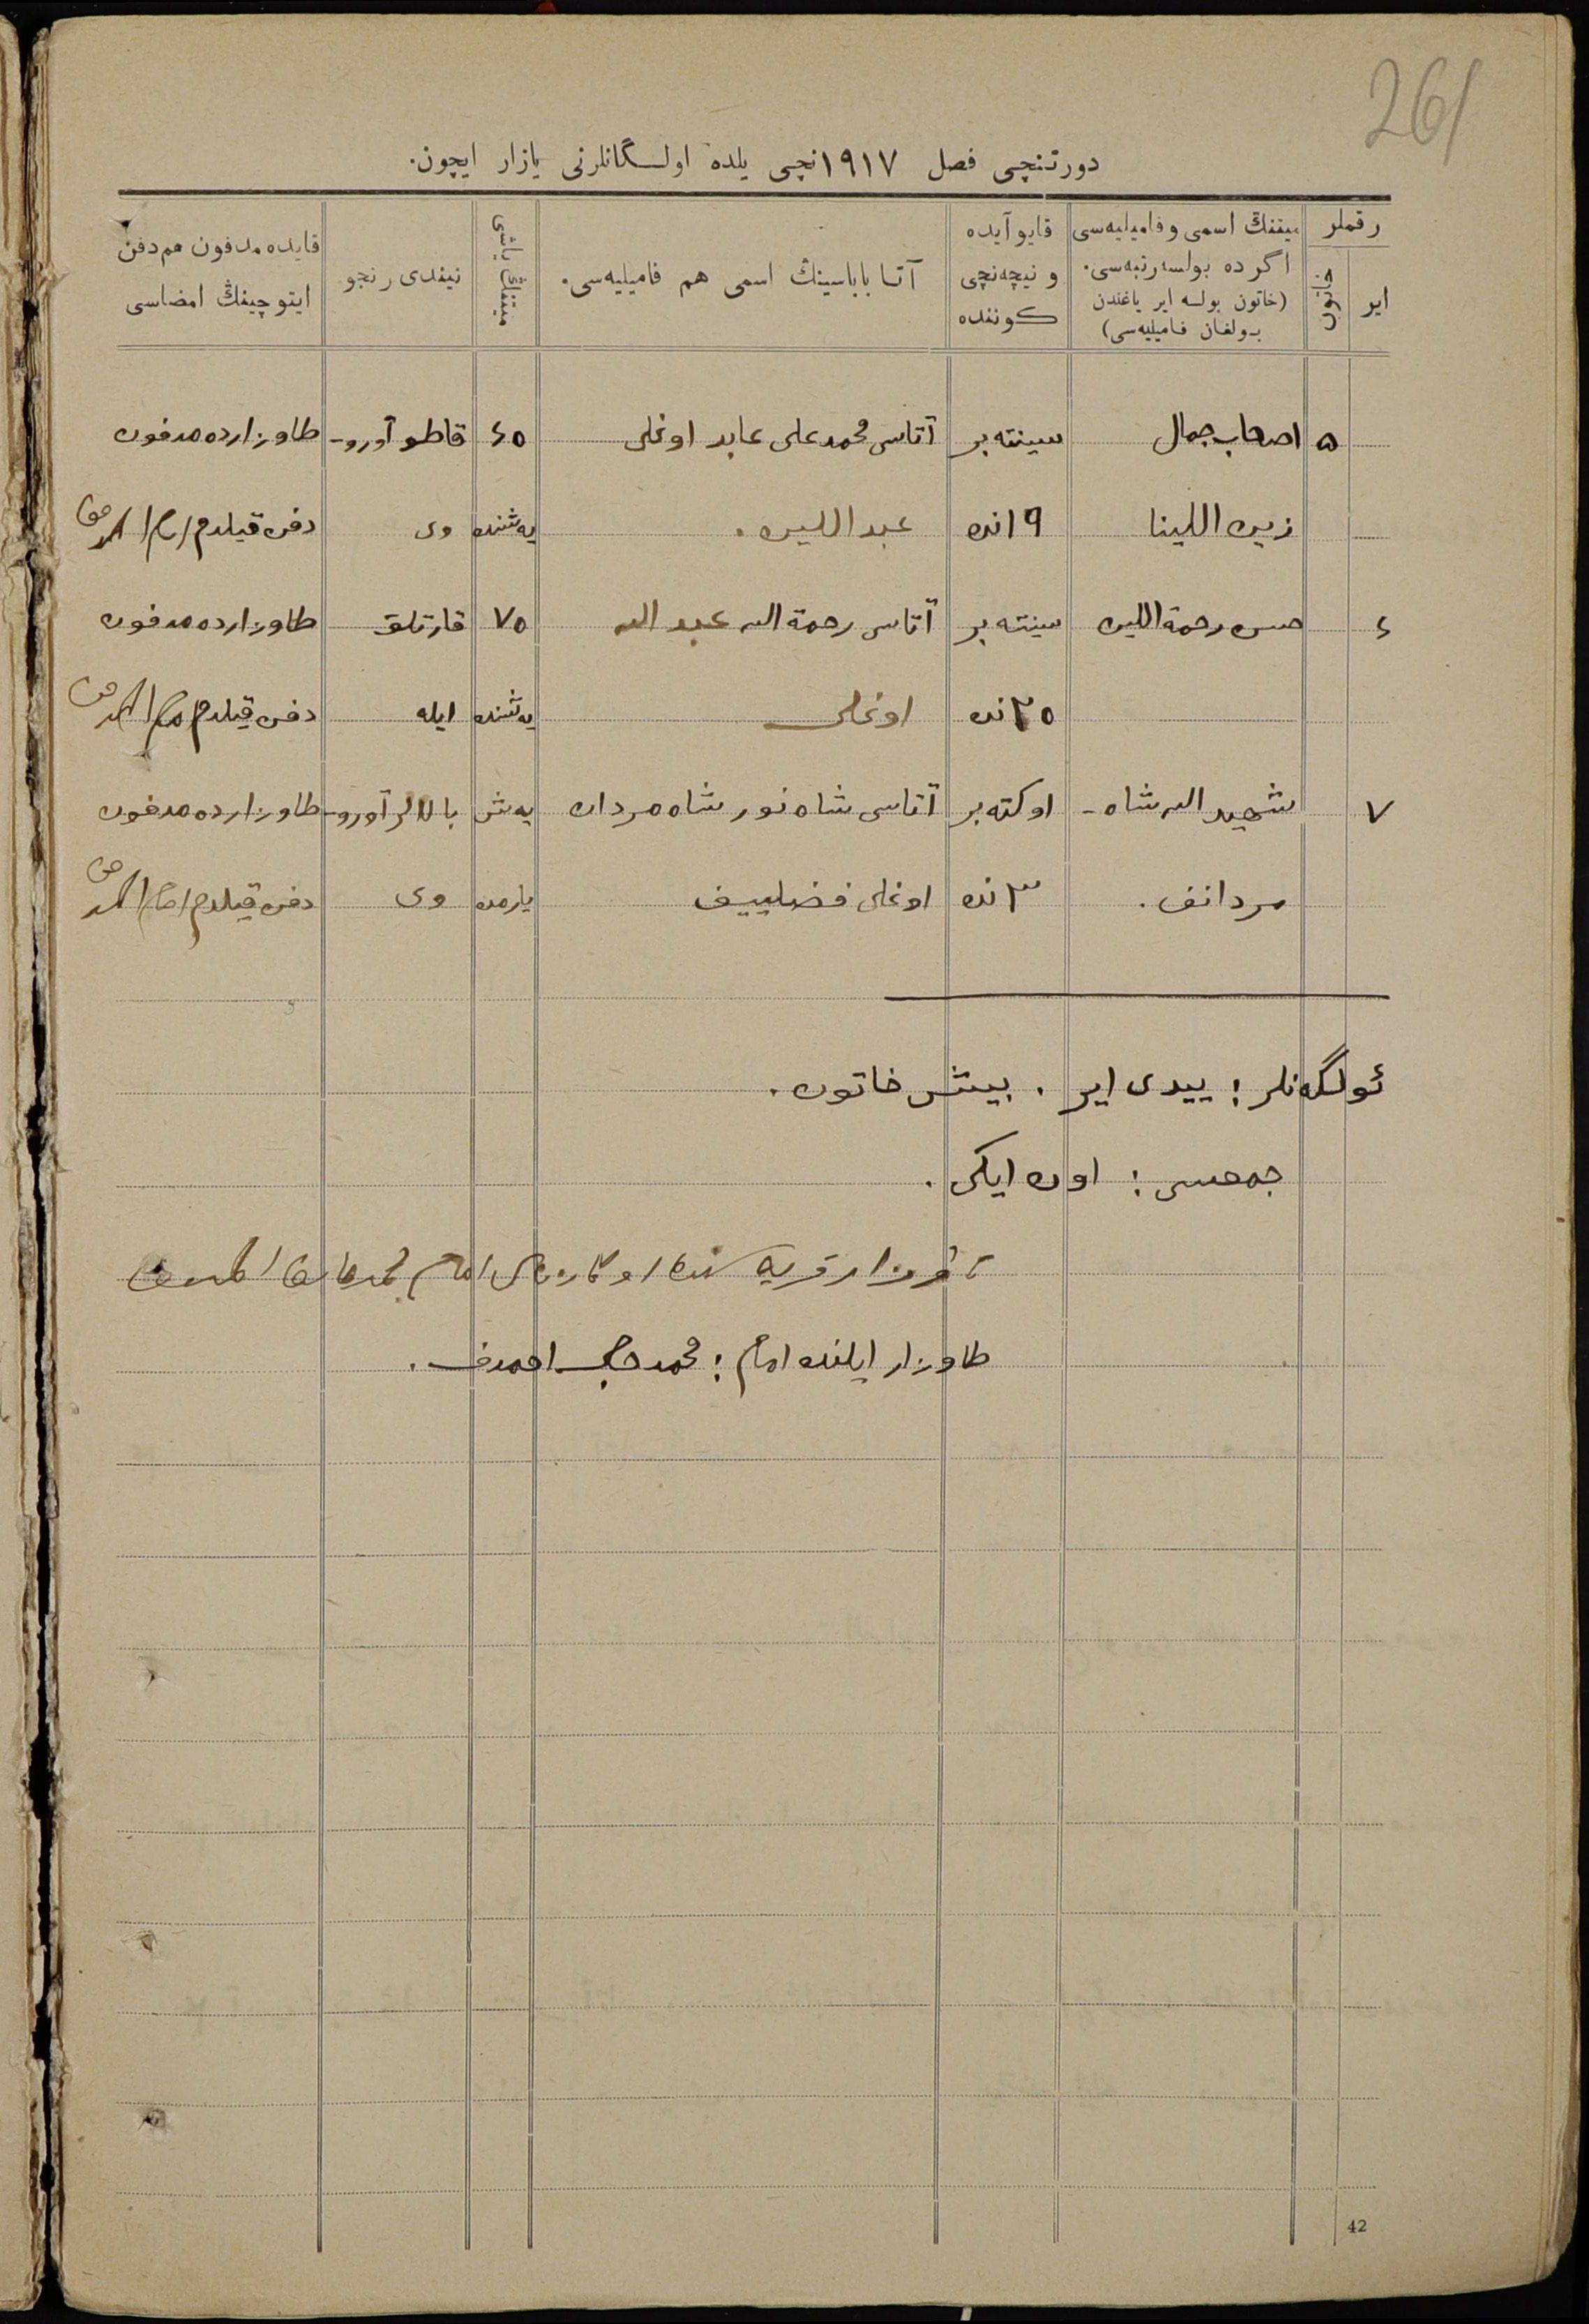 261
دورتنچی فصل ١٩١٧نچی یلده اولسگانلرنی یازار ایچون.
رقملر
ایر
خاتون
میتنڭ اسمی وفامیلیه‌سی
اگرده بولسه رتبه‌سی.
(خاتون بولسه ایر یاغندن
بولغان فامیلیه‌سی)
قایو آیده
و نیچه‌نچی
کوننده
آتا باباسینڭ اسمی هم فامیلیه‌سی.
میتنڭ یاشی
نیندی رنجو
قایده مدفون هم دفن
ایتوچینڭ امضاسی
٥ اصحاب جمال سینته‌بر آتاسی محمدعلی عابد اوغلی ٤٥ قاطو آورو- طاوزارده مدفون
زین اللینا ١٩نده عبداللین. یه‌شنده وی دفن قیلدم امام
٤ حسن رحمة اللین سینته‌بر آتاسی رحمة الله عبد الله ٧٥ قارتلق طاوزارده مدفون
٢٥نده اوغلی یه‌شنده ایله دفن قیلدم امام
٧ شهید الله شاه- اوکته‌بر آتاسی شاه نور شاه مردان یه‌ش بالالر آورو- طاوزارده مدفون
مردانف. ٣نده اوغلی فضلییف یارمده وی دفن قیلدم امام
ئولگه‌نلر: ییدی ایر. بیش خاتون.
جمعسی: اون ایکی.
طاوزار ایلنده امام: محمد احمدف.
42